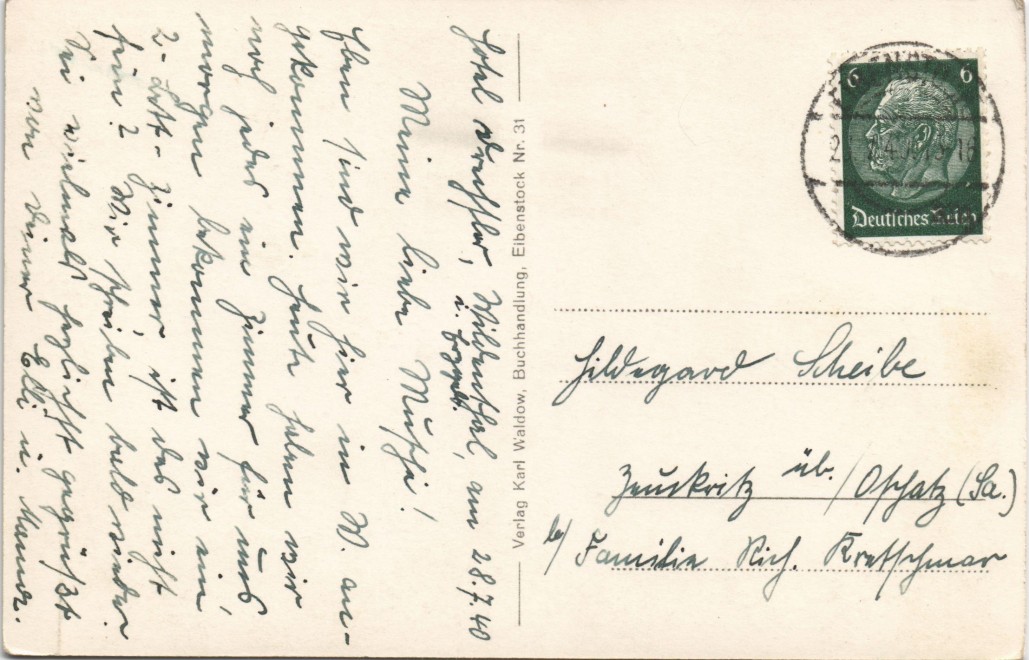 Hotel Drechsler, Wildenthal, am 28.7.40
i. Erzgeb.
Meine liebe Mutsch!
Eben sind wir hier in W. an-
gekommen. Heute haben wir
noch jeder ein Zimmer für uns
morgen bekommen wir ein
2-Bett-Zimmer, ist das nicht
fein? Wir schreiben bald wieder.
Sei vielmals herzlichst gegrüßt
von Deiner Elli u.
Verlag Karl Waldow, Buchhandlung, Eibenstock Nr. 31
6 6
Deutsches Reich
Hildegard Scheibe
Zeuckritz üb./Oschatz (Sa.)
b/ Familie Rich. Kretschmar